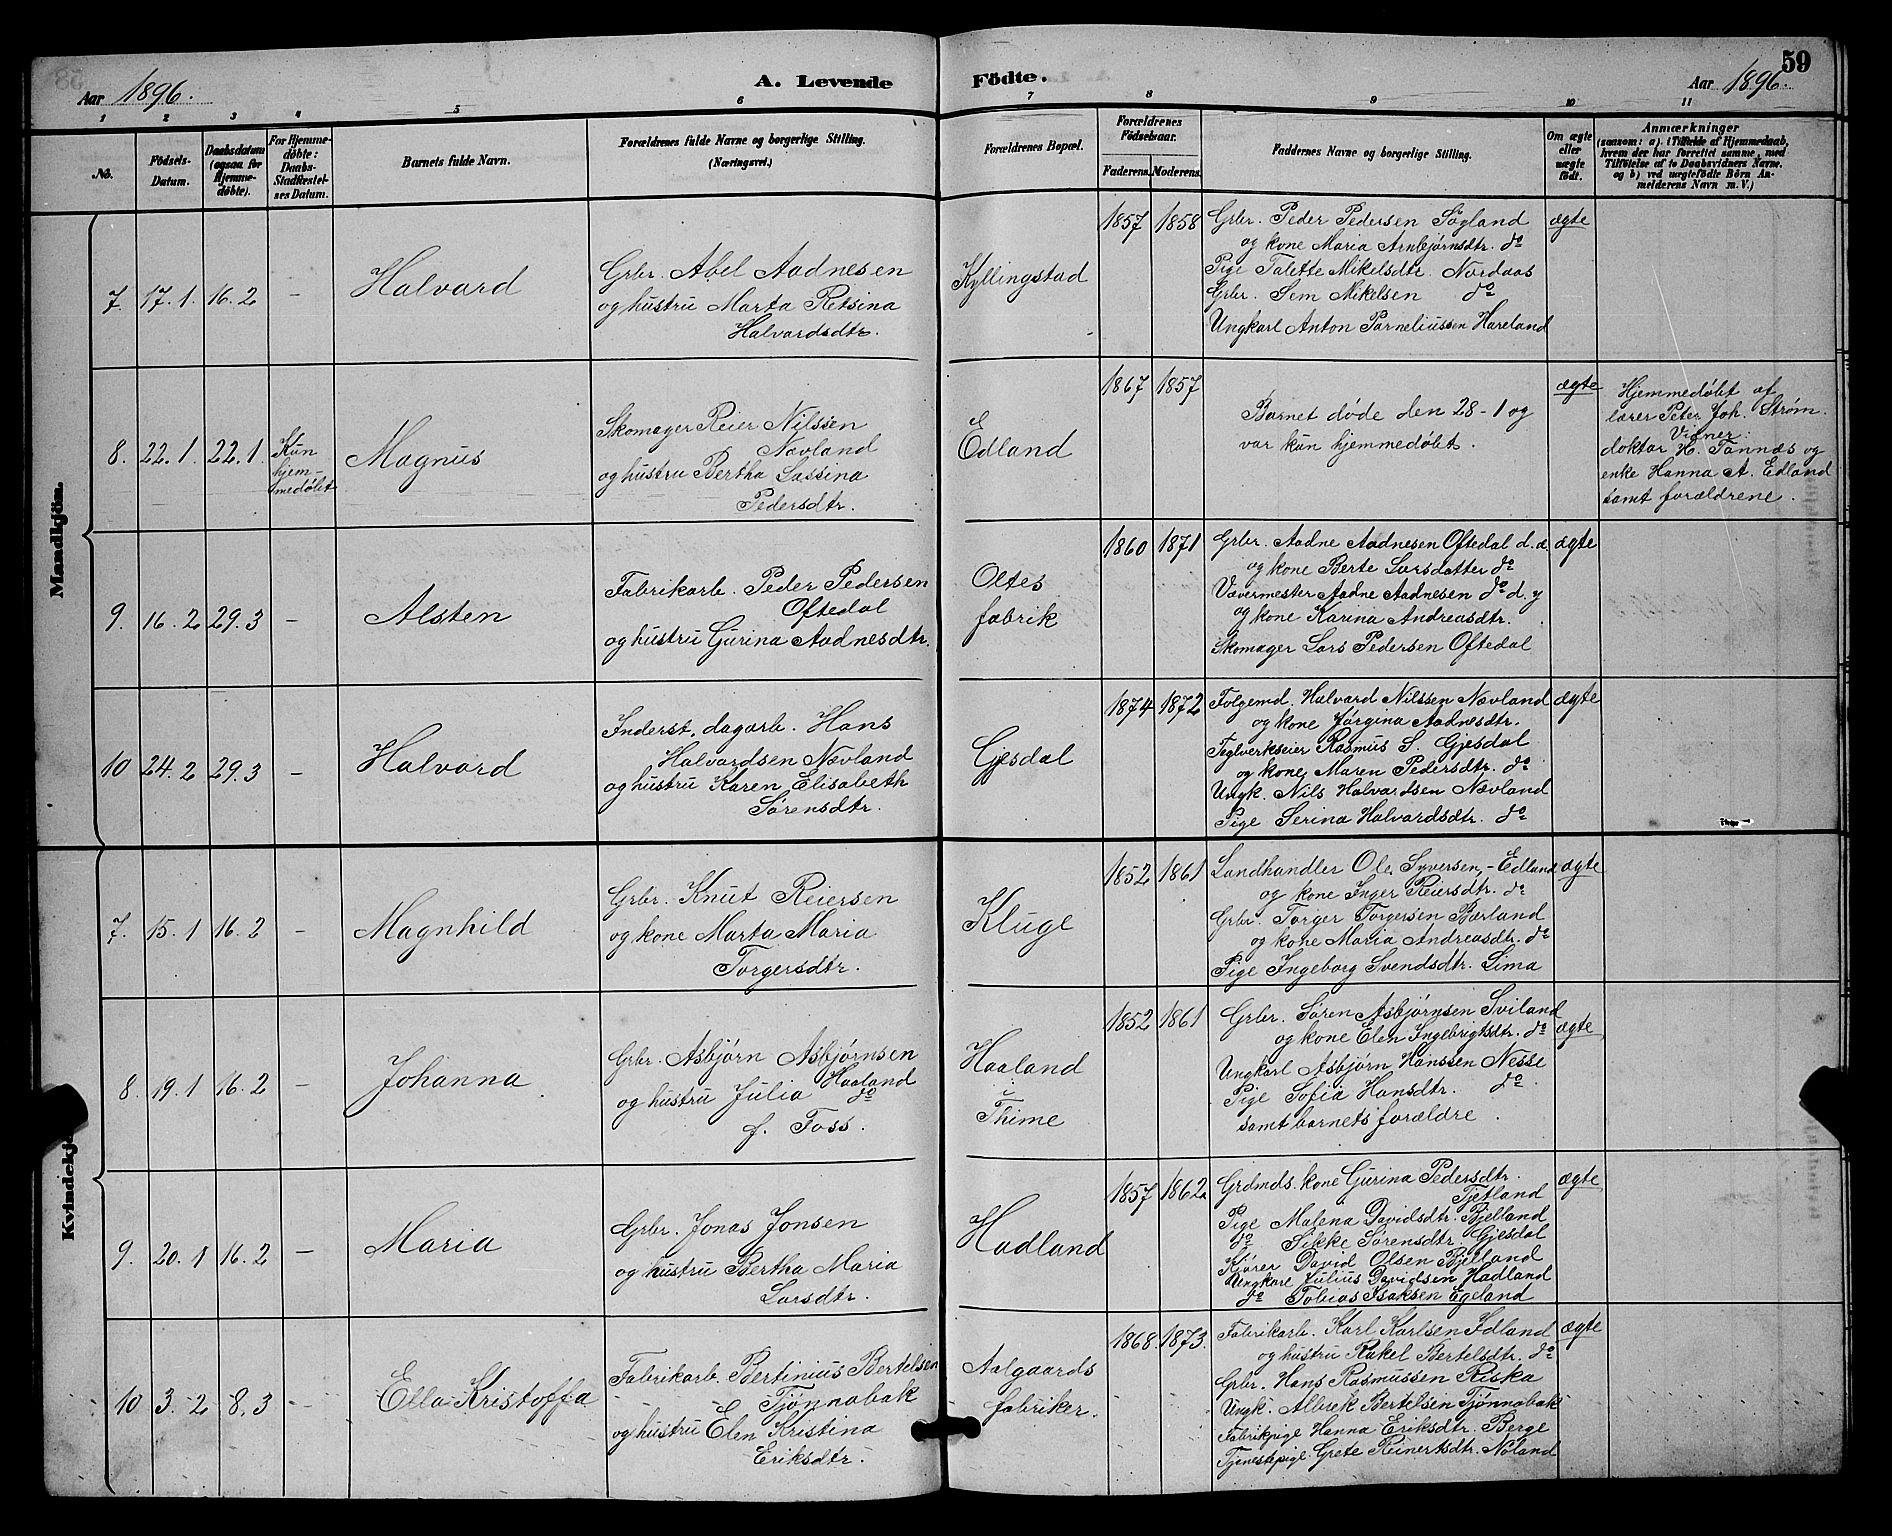 59
Aar 1896.
A. Levende Födte.
Aar 1896.
1 2 3 4 5 6 7 8 9 10 11
No.
Födsels-Datum.
Daabsdatum (ogsaa for Hjemmedøbte).
For Hjemmedøbte: Daabs-Stadfæstelses Datum.
Barnets fulde Navn.
Forældrenes fulde Navne og borgerlige Stilling. (Næringsvei.)
Forældrenes Bopæl.
Forældrenes Födselsaar.
Faderens. Moderens.
Faddernes Navne og borgerlige Stilling.
Om ægte eller uægte født.
Anmærkninger
(saasom: a) i Tilfælde af Hjemmedaab, hvem der har forrettet samme, med Tilføielse af to Daabsvidners Navne, og b) ved uægtefödte Börn Anmelderens Navn m. V.)
Mandkjön.
7. 17.1. 16.2 —
Halvard
Grbr. Abel Aadnesen
og hustru Marta Retsina
Halvardsdtr.
Kyllingstad
1857 1858
Grbr. Peder Pedersen Søyland
og kone Maria Arnbjørnsdtr. do
Pige Talette Mikelsdtr. Nordaas
Grbr. Sem Mikelsen do
Ungkarl Anton Parneliussen Hareland
ægte
8. 22.1. 22.1.
Kun
hjem-
medøbt
Magnus
Skomager Reier Nilssen
Nævland
og hustru Bertha Lassina
Pedersdtr.
Edland
1867 1857
Barnet døde den 28-1 og
var kun hjemmedøbt.
ægte
Hjemmedøbt af
lærer Peter Joh. Strøm.
Vidner:
doktor H. Tannæs og
enke Hanna A. Edland
samt forældrene.
9. 16.2 29.3 —
Alsten
Fabrikarb. Peder Pedersen
Oftedal
og hustru Gurina Aadnesdtr.
Oltes
fabrik
1860 1871
Grbr. Aadne Aadnesen Oftedal d.æ.
og kone Berte Larsdatter do
Vævermester Aadne Aadnesen do d.y
og kone Karina Andreasdtr.
Skomager Lars Pedersen Oftedal
ægte
10 24.2 29.3 —
Halvard
Inderst, dagarb. Hans
Halvardsen Nævland
og hustru Karen Elisabeth
Sørensdtr.
Gjesdal
1874 1872
Folgemd. Halvard Nilssen Nævland
og kone Jørgina Aadnesdtr.
Teglverkseier Rasmus S. Gjesdal
og kone Maren Pedersdtr. do
Ungk. Nils Halvardsen Nævland
Pige Serina Halvardsdtr. do
ægte
Kvindekj
7. 15.1 16.2 —
Magnhild
Grbr. Knut Reiersen
og kone Marta Maria
Torgersdtr.
Kluge
1852 1861
Landhandler Ole Syversen - Edland
og kone Inger Reiersdtr. do
Grbr. Torger Torgersen Bærland
og kone Maria Andreasdtr. do
Pige Ingeborg Svendsdtr. Lima
ægte
8. 19.1 16.2 —
Johanna
Grbr. Asbjørn Asbjørnsen
Haaland
og hustru Julia do
f. Foss.
Haaland
i
Thime
1852 1861
Grbr. Søren Asbjørnsen Sviland
og kone Elen Ingebrigtsdtr. do
Ungkarl Asbjørn Hanssen Nesse
Pige Sofia Hansdtr. do
samt barnets forældre.
ægte
9. 20.1 16.2 —
Maria
Grbr. Jonas Jonsen
og hustru Bertha Maria
Larsdtr.
Hadland
1857 1862
Grdmds. kone Gurina Pedersdtr.
Tjetland
Pige Malena Davidsdtr. Bjelland
do Sikke Sørensdtr. Gjesdal
Kjører David Olsen Bjelland
Ungkarl Julius Davidsen Hadland
do Tobias Isaksen Egeland
ægte
10 3.2 8.3 —
Ella Kristoffa
Fabrikarb. Bertinius Bertelsen
Tjønnabak
og hustru Elen Kristina
Eriksdtr.
Aalgaards
fabriker.
1868. 1873.
Fabrikarb. Karl Karlsen Edland
og hustru Rakel Bertelsdtr. do
Grbr. Hans Rasmussen Riska
Ungk. Albrek Bertelsen Tjønnabak
Fabrikpige Hanna Eriksdtr. Berge
Tjenestepige Grete Reinertsdtr. Noland
ægte